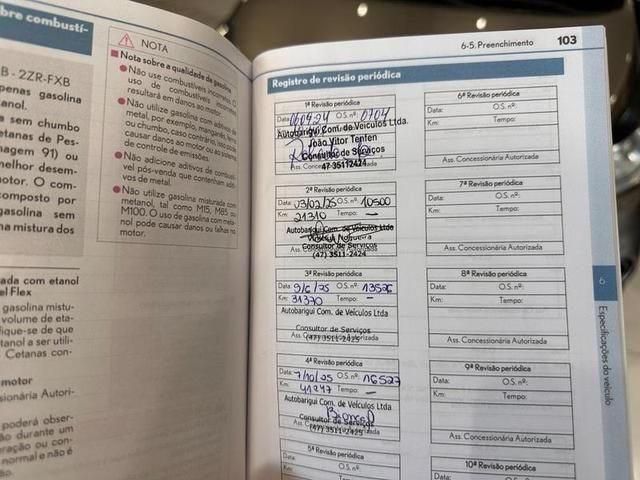 bre combustí-
B - 2ZR-FXB
penas gasolina
anol.
a sem chumbo
etanas de Pes-
nagem 91) ou
nelhor desem-
otor. O com-
composto por
gasolina sem
na mistura dos
ada com etanol
el Flex
a gasolina mistu-
volume de eta-
fique-se de que
tanol a ser utili-
Cetanas con-
motor
sionária Autori-
poderá obser-
ão durante um
eração ou con-
normal e não é
ão.
NOTA
Nota sobre a qualidade de gasolina
Não use combustíveis incorretos. O
uso de combustíveis incorretos
resultará em danos ao motor.
Não utilize gasolina com aditivos de
metal, por exemplo, manganês, ferro
ou chumbo, caso contrário, isso pode
causar danos ao motor ou ao sistema
de controle de emissões.
Não adicione aditivos de combustí-
vel pós-venda que contenham aditi-
vos de metal.
Não utilize gasolina misturada com
metanol, tal como M15, M85 ou
M100. O uso de gasolina com meta-
nol pode causar danos ou falhas no
motor.
6-5. Preenchimento 103
Registro de revisão periódica
1ª Revisão periódica
Data: O.S. nº:
Autobarigui Com. de Veiculos Ltda.
João Vitor Tenfen
Consultor de Serviços
47 35112424
2ª Revisão periódica
Data: 03/02/25 O.S. nº: 10500
Km: 21310 Tempo: —
Autobarigui Com. de Veículos Ltda
Consultor de Serviços
(47) 3511-2424
3ª Revisão periódica
Data: 9/6/25 O.S. nº: 13526
Km: 31370 Tempo: —
Autobarigui Com. de Veículos Ltda
Consultor de Serviços
(47) 3511-2425
4ª Revisão periódica
Data: 7/10/25 O.S. nº: 16527
Km: 41247 Tempo: —
Autobarigui Com. de Veículos Ltda
Consultor de Serviços
(47) 3511-2425
5ª Revisão periódica
Data: O.S. nº:
Km: Tempo:
6ª Revisão periódica
Data: O.S. nº:
Km: Tempo:
Ass. Concessionária Autorizada
7ª Revisão periódica
Data: O.S. nº:
Km: Tempo:
Ass. Concessionária Autorizada
8ª Revisão periódica
Data: O.S. nº:
Km: Tempo:
Ass. Concessionária Autorizada
9ª Revisão periódica
Data: O.S. nº:
Km: Tempo:
Ass. Concessionária Autorizada
10ª Revisão periódica
Data: O.S. nº:
6
Especificações do veículo